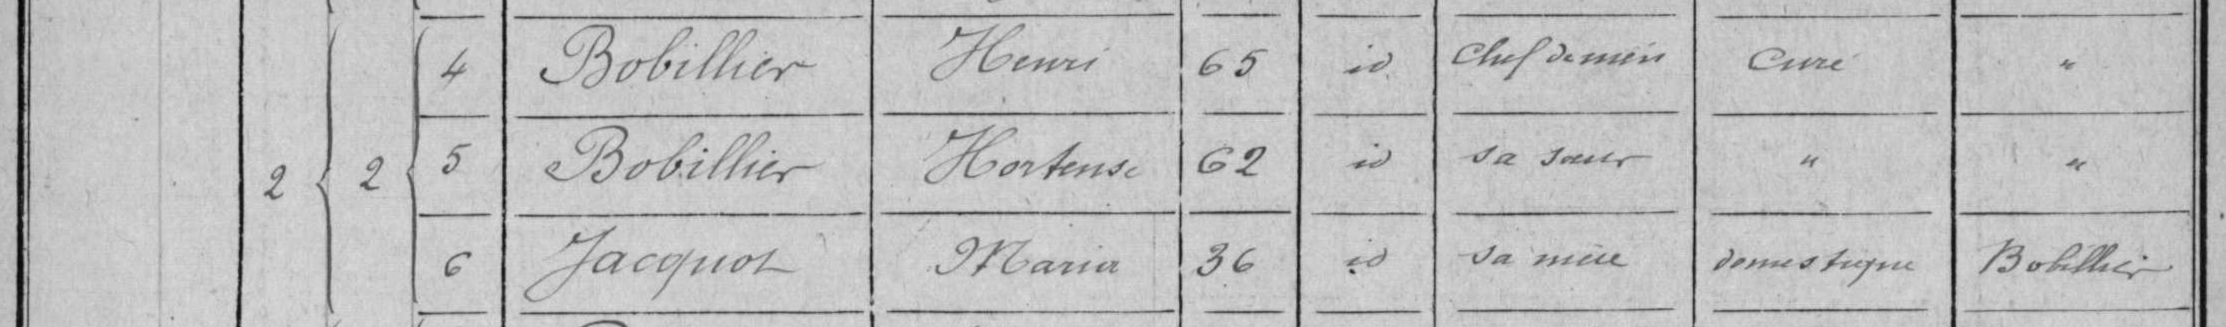 4 Bobillier Henri 65 id Chef de mén Curé "
2 2 5 Bobillier Hortense 62 id sa sœur " "
6 Jacquot Maria 36 id sa mère domestique Bobillier